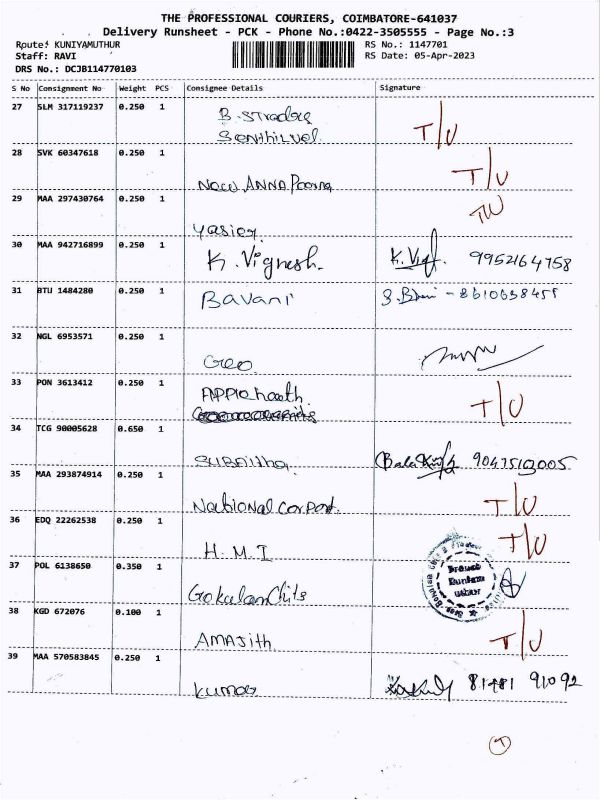 THE PROFESSIONAL COURIERS, COIMBATORE-641037
Delivery Runsheet - PCK - Phone No.:0422-3505555 - Page No.:3
Route: KUNIYAMUTHUR RS No.: 1147701
Staff: RAVI RS Date: 05-Apr-2023
DRS No.: DCJB114770103
S No Consignment No Weight PCS Consignee Details Signature
27 SLM 317119237 0.250 1 B. Straders T/U
Senthilvel
28 SVK 60347618 0.250 1
New ANNA Poorna T/U
29 MAA 297430764 0.250 1 T/U
yasier
30 MAA 942716899 0.250 1
K. Vignesh. 9952164758
31 BTU 1484280 0.250 1 Bavani 8610638455
32 NGL 6953571 0.250 1
Geo
33 PON 3613412 0.250 1 T/U
34 TCG 90005628 0.650 1
35 MAA 293874914 0.250 1
National T/U
36 EDQ 22262538 0.250 1
H.M.I T/U
37 POL 6138650 0.350 1
Gokulam Chits
38 KGD 672076 0.100 1
AMAJith T/U
39 MAA 570583845 0.250 1
Kumar 81481 91092